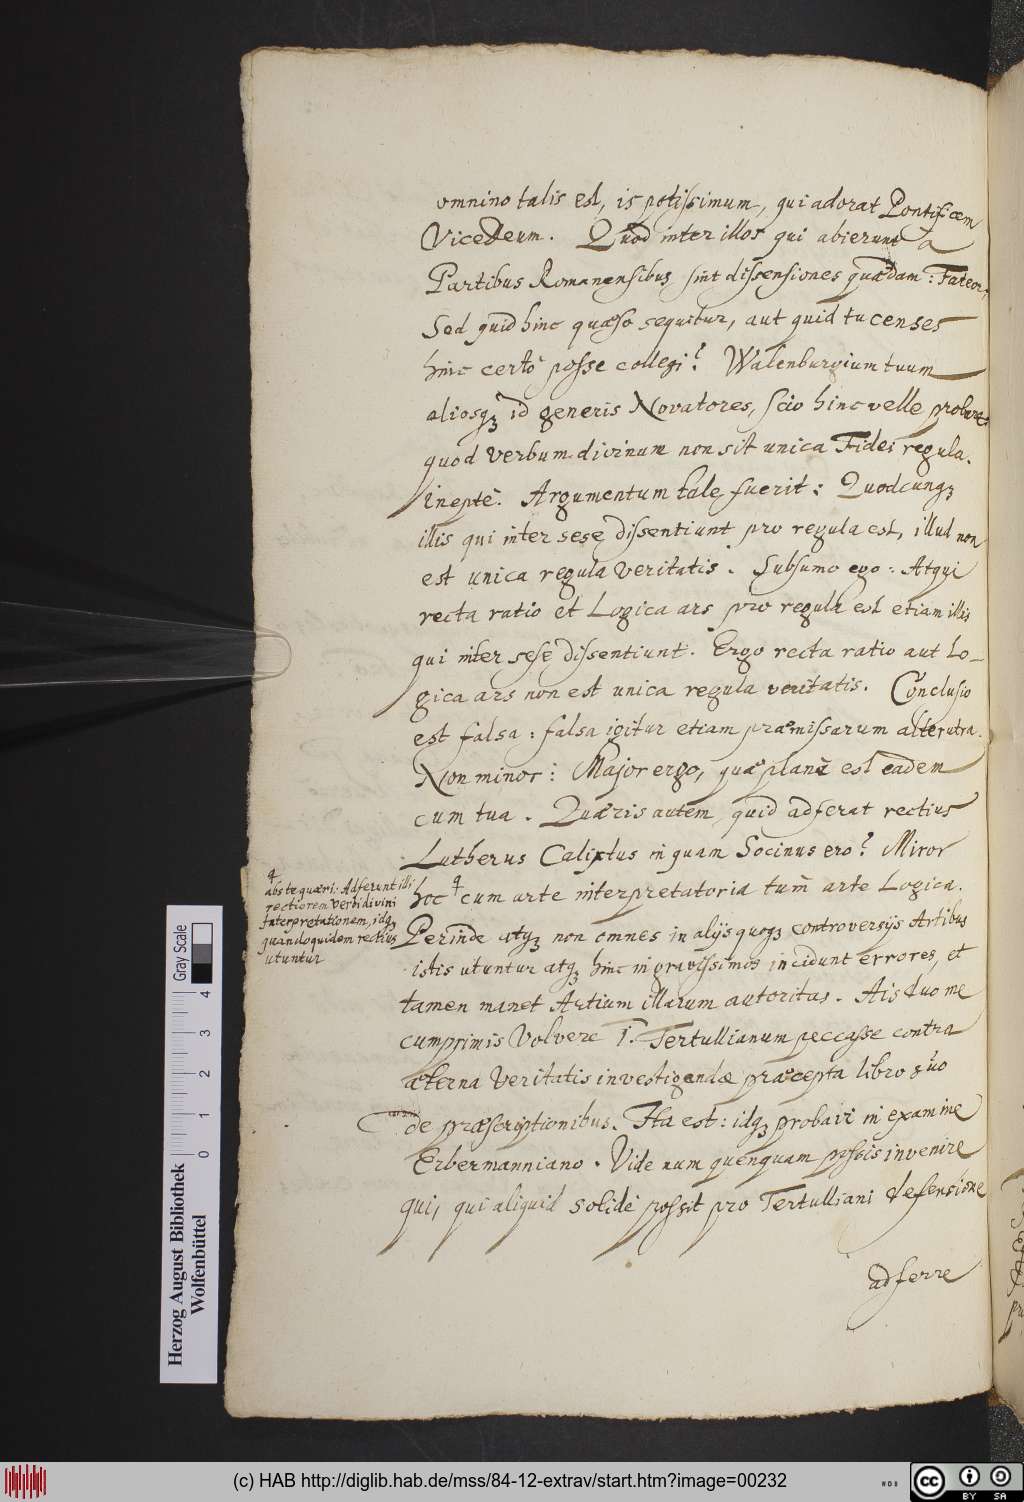 omnino talis est, is potissimum, qui adorat Pontificem
ViceDeum. Quod inter illos qui abierunt a
Partibus Romanensibus sint dissensiones quædam: Fateor,
Sed quid hinc quæso sequitur, aut quid tu censes
hinc certò posse collegi? Walenburgium tuum
aliosqꝫ id generis Novatores, scio hinc velle probare
quod Verbum divinum non sit unica Fidei regula.
ineptè. Argumentum tale fuerit: Quodcunqꝫ
illis qui inter sese dissentiunt pro regula est, illud non
est unica regula Veritatis. Subsumo ego: Atqui
recta ratio et Logica ars pro regula est etiam illis
qui inter sese dissentiunt. Ergo recta ratio aut Lo-
gica ars non est unica regula veritatis. Conclusio
est falsa: falsa igitur etiam præmissarum alterutra.
Non minor: Major ergo, quæ planè est eadem
cum tua. Quæris autem, quid adferat rectius
Lutherus Calixtus in quam Socinus ero? Miror
hoc cum arte interpretatoria tum arte Logica.
abs te quæri: Adferunt illi
rectiorem Verbi divini
Interpretationem, idqꝫ
quandoquidem rectius
utuntur
Perinde atqꝫ non omnes in alijs quoqꝫ controversijs Artibus
istis utuntur atqꝫ hinc in gravissimos incidunt errores, et
tamen manet Artium illarum autoritas. Ais duo me
cumprimis Volvere 1. Tertullianum peccasse contra
æterna Veritatis investigandæ præcepta libro suo
de præscriptionibus. Ita est: idqꝫ probavi in examine
Erbermanniano. Vide num quenquam possis invenire
qui, qui aliquid solidi possit pro Tertulliani defensione
adferre
Herzog August Bibliothek
Wolfenbüttel
0 1 2 3 4
Gray Scale
(c) HAB http://diglib.hab.de/mss/84-12-extrav/start.htm?image=00232
cc BY SA